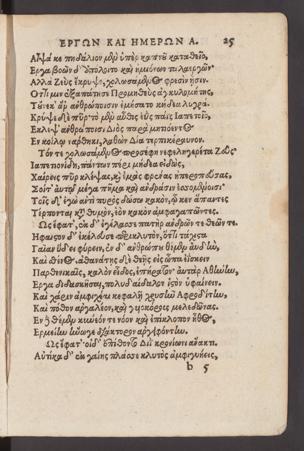 ΕΡΓΩΝ ΚΑΙ ΗΜΕΡΩΝ Α. 25
Αἶψά κε πηδάλιον μὲν ὑπὲρ καπνοῦ καταθεῖο,
Ἔργα βοῶν δ' ἀπόλοιτο καὶ ἡμιόνων ταλαεργῶν.
Ἀλλὰ Ζεὺς ἔκρυψε, χολωσάμενος φρεσὶν ᾗσιν.
Ὅττι μιν ἐξαπάτησε Προμηθεὺς ἀγκυλομήτης,
Τοὔνεκ' ἄρ' ἀνθρώποισιν ἐμήσατο κήδεα λυγρά.
Κρύψε δὲ πῦρ· τὸ μὲν αὖθις ἐῢς παῖς Ἰαπετοῖο,
Ἔκλεψ' ἀνθρώποισι Διὸς παρὰ μητιόεντος
Ἐν κοίλῳ νάρθηκι, λαθὼν Δία τερπικέραυνον.
Τὸν δὲ χολωσάμενος προσέφη νεφεληγερέτα Ζεύς·
Ἰαπετιονίδη, πάντων πέρι μήδεα εἰδὼς,
Χαίρεις πῦρ κλέψας, καὶ ἐμὰς φρένας ἠπεροπεύσας,
Σοί τ' αὐτῷ μέγα πῆμα καὶ ἀνδράσιν ἐσσομένοισι·
Τοῖς δ' ἐγὼ ἀντὶ πυρὸς δώσω κακὸν, ᾧ κεν ἅπαντες
Τέρπονται κατὰ θυμὸν, ἑὸν κακὸν ἀμφαγαπῶντες.
Ὣς ἔφατ', ἐκ δ' ἐγέλασσε πατὴρ ἀνδρῶν τε θεῶν τε.
Ἥφαιστον δ' ἐκέλευσε περικλυτὸν, ὅττι τάχιστα
Γαῖαν ὕδει φύρειν, ἐν δ' ἀνθρώπου θέμεν αὐδὴν,
Καὶ σθένος, ἀθανάτῃς δὲ θεῇς εἰς ὦπα ἐΐσκειν
Παρθενικαῖς, καλὸν εἶδος, ἐπήρατον· αὐτὰρ Ἀθήνην
Ἔργα διδασκῆσαι, πολυδαίδαλον ἱστὸν ὑφαίνειν.
Καὶ χάριν ἀμφιχέαι κεφαλῇ χρυσῆν Ἀφροδίτην,
Καὶ πόθον ἀργαλέον, καὶ γυιοκόρους μελεδώνας.
Ἐν δὲ θέμεν κύνεόν τε νόον καὶ ἐπίκλοπον ἦθος,
Ἑρμείην ἤνωγε διάκτορον ἀργειφόντην.
Ὣς ἔφαθ'· οἱ δ' ἐπίθοντο Διὶ κρονίωνι ἄνακτι.
Αὐτίκα δ' ἐκ γαίης πλάσσε κλυτὸς ἀμφιγυήεις,
b 5